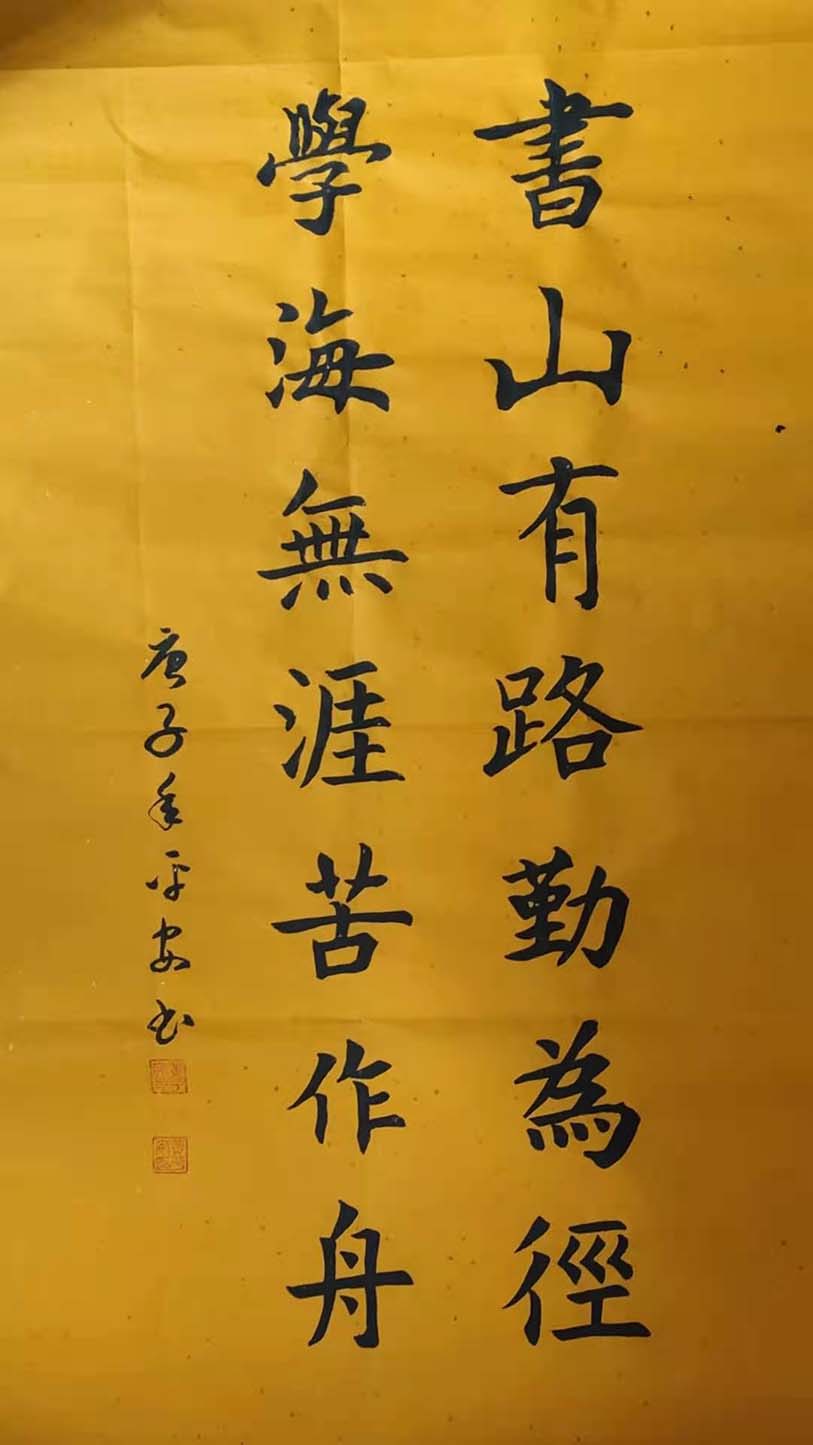 書山有路勤為徑
學海無涯苦作舟
庚子年平安书